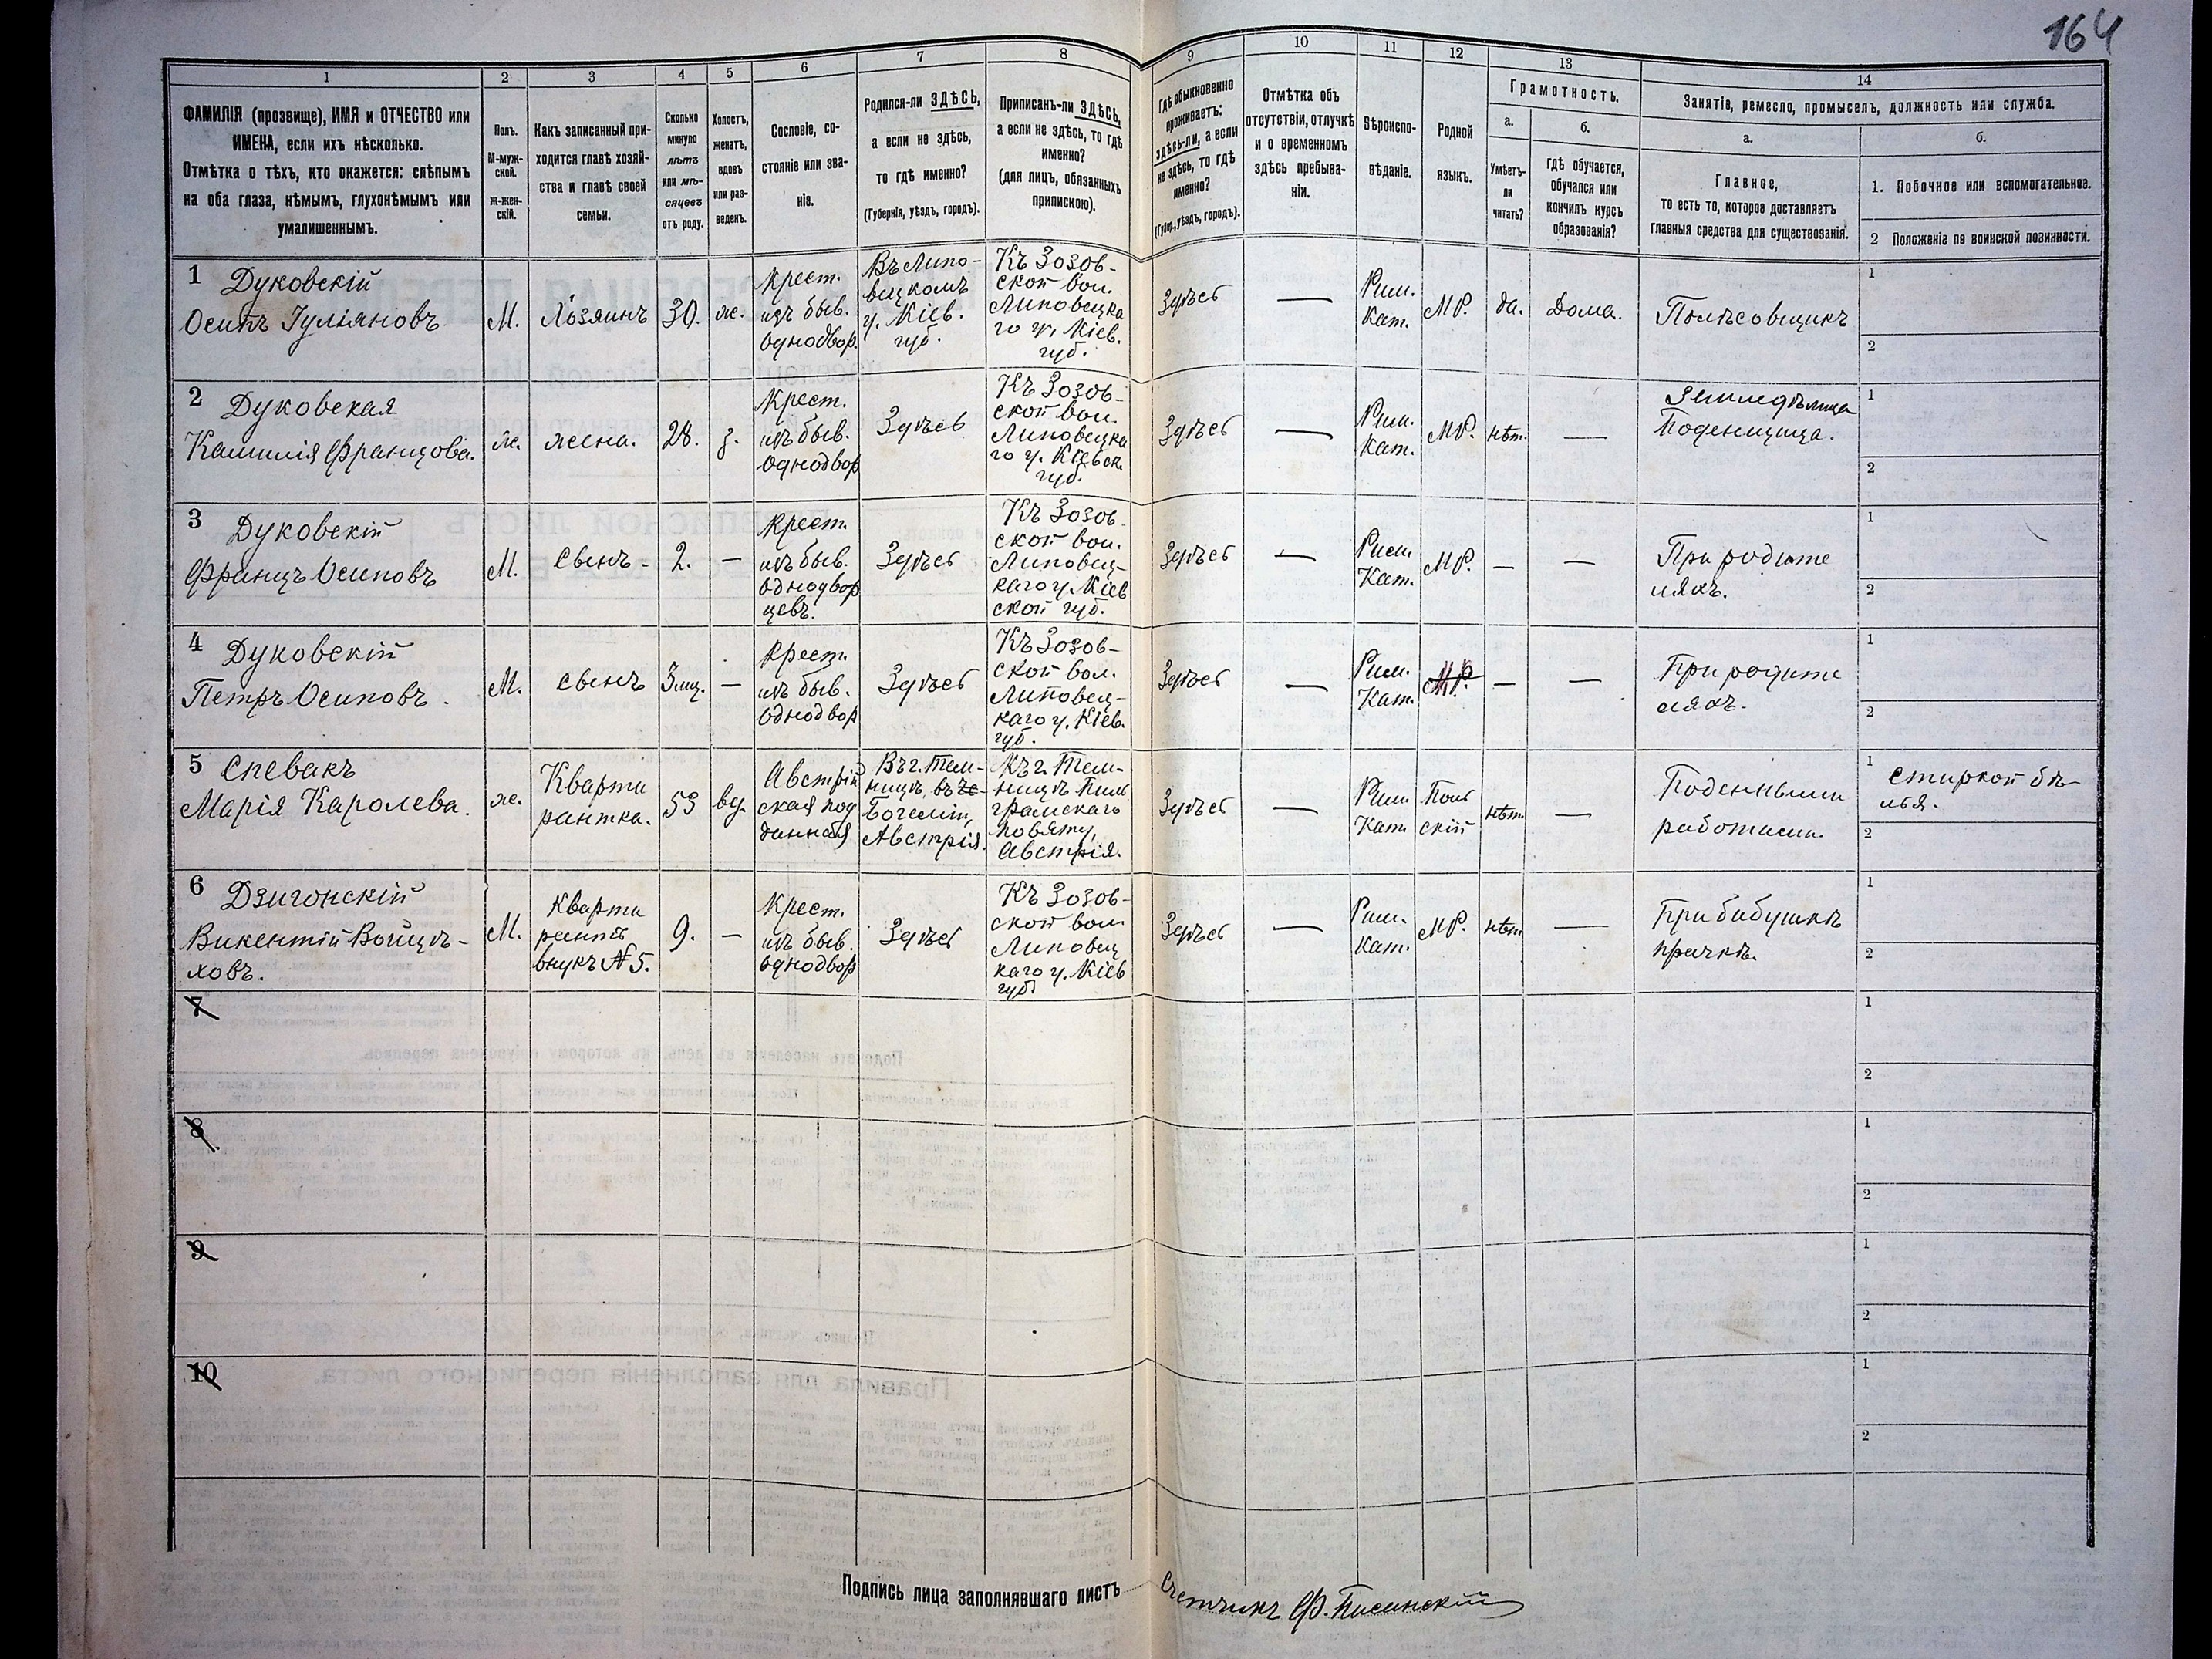 164
1
2
3
4
5
6
7
8
9
10
11
12
13
14
ФАМИЛІЯ (прозвище), ИМЯ и ОТЧЕСТВО или
ИМЕНА, если ихъ нѣсколько.
Отмѣтка о тѣхъ, кто окажется: слѣпымъ
на оба глаза, нѣмымъ, глухонѣмымъ или
умалишеннымъ.
Полъ.
М-муж-
ской.
ж-жен-
скій.
Какъ записанный при-
ходится главѣ хозяй-
ства и главѣ своей
семьи.
Сколько
минуло
лѣтъ
или мѣ-
сяцевъ
отъ роду.
Холостъ,
женатъ,
вдовъ
или раз-
веденъ.
Сословіе, со-
стояніе или зва-
ніе.
Родился-ли ЗДѢСЬ,
а если не здѣсь,
то гдѣ именно?
(Губернія, уѣздъ, городъ).
Приписанъ-ли ЗДѢСЬ,
а если не здѣсь, то гдѣ
именно?
(для лицъ, обязанныхъ
припискою).
Гдѣ обыкновенно
проживаетъ:
здѣсь-ли, а если
не здѣсь, то гдѣ
именно?
(Губер., уѣздъ, городъ).
Отмѣтка объ
отсутствіи, отлучкѣ
и о временномъ
здѣсь пребыва-
ніи.
Вѣроиспо-
вѣданіе.
Родной
языкъ.
Грамотность.
а.
б.
Умѣетъ-
ли
читать?
гдѣ обучается,
обучался или
кончилъ курсъ
образованія?
Занятіе, ремесло, промыселъ, должность или служба.
а.
б.
Главное,
то есть то, которое доставляетъ
главныя средства для существованія.
1. Побочное или вспомогательное.
2 Положеніе по воинской повинности.
1 Дуковскій
Осипъ Іуліановъ
М.
Хозяинъ
30.
ж.
Крест.
изъ быв.
однодвор.
Въ Липо-
вецкомъ
у. Кіев.
губ.
Къ Зозов-
ской вол.
Липовецка
го у. Кіев.
губ.
Здѣсь
—
Рим.
Кат.
МР.
да.
Дома.
Полѣсовщикъ
1
2
2 Дуковская
Камилія Францова.
ж.
жена.
28.
з.
Крест.
изъ быв.
однодвор
Здѣсь
Къ Зозов-
ской вол.
Липовецка
го у. Кіевск.
губ.
Здѣсь
—
Рим.
Кат.
МР.
нѣт.
—
Земледѣлица
Поденщица.
1
2
3 Дуковскій
Францъ Осиповъ
М.
сынъ -
2.
—
Крест.
изъ быв.
однодвор
цевъ.
Здѣсь
Къ Зозов-
ской вол.
Липовец-
каго у. Кіев
ской губ.
Здѣсь
—
Рим.
Кат.
МР.
—
—
При родите
ляхъ.
1
2
4 Дуковскій
Петръ Осиповъ.
М.
сынъ
3 мц.
—
Крест.
изъ быв.
однодвор
Здѣсь
Къ Зозов-
ской вол.
Липовец-
каго у. Кіев.
губ.
Здѣсь
—
Рим.
Кат.
МР.
—
—
При родите
ляхъ.
1
2
5 Спевакъ
Марія Каролева.
ж.
Кварти
рантка.
53
вд.
Австрій
ская под
данная
Въ г. Тем-
ницѣ, въ
Богеміи,
Австрія.
Къ г. Тем-
ницѣ
повяту,
Австрія.
Здѣсь
—
Рим
Кат.
Поль
скій
нѣт.
—
Поденными
работами.
1 стиркой бѣ-
лья.
2
6 Дзигонскій
Викентій Войцѣ-
ховъ.
М.
Кварти
рантъ
внукъ №5.
9.
—
Крест.
изъ быв.
однодвор
Здѣсь
Къ Зозов-
ской вол
Липовец
каго у. Кіев
губ
Здѣсь
—
Рим.
кат.
МР.
нѣт.
—
При бабушкѣ
прачкѣ.
1
2
7
1
2
8
1
2
9
1
2
10
1
2
Подпись лица заполнявшаго листъ
Счетчикъ Ф. Писинскій